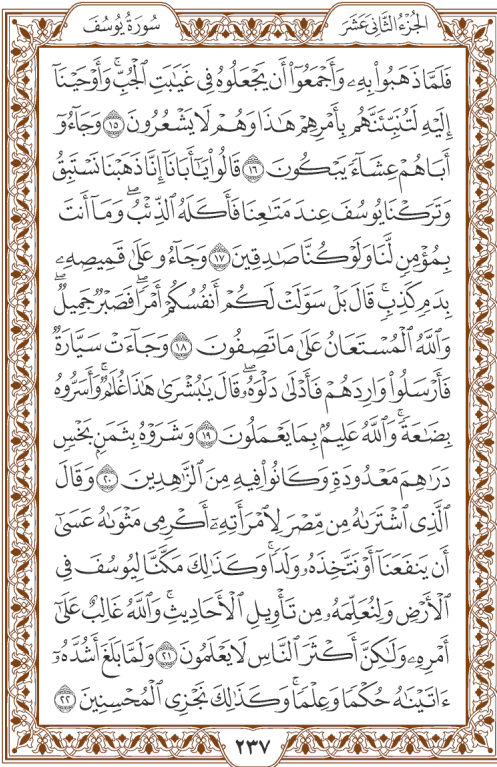 الجزء الثاني عشر
سورة يوسف
فَلَمَّا ذَهَبُوا۟ بِهِۦ وَأَجْمَعُوٓا۟ أَن يَجْعَلُوهُ فِى غَيَـٰبَتِ ٱلْجُبِّ ۚ وَأَوْحَيْنَآ
إِلَيْهِ لَتُنَبِّئَنَّهُم بِأَمْرِهِمْ هَـٰذَا وَهُمْ لَا يَشْعُرُونَ ١٥ وَجَآءُوٓ
أَبَاهُمْ عِشَآءً يَبْكُونَ ١٦ قَالُوا۟ يَـٰٓأَبَانَآ إِنَّا ذَهَبْنَا نَسْتَبِقُ
وَتَرَكْنَا يُوسُفَ عِندَ مَتَـٰعِنَا فَأَكَلَهُ ٱلذِّئْبُ ۖ وَمَآ أَنتَ
بِمُؤْمِنٍ لَّنَا وَلَوْ كُنَّا صَـٰدِقِينَ ١٧ وَجَآءُو عَلَىٰ قَمِيصِهِۦ
بِدَمٍ كَذِبٍ ۚ قَالَ بَلْ سَوَّلَتْ لَكُمْ أَنفُسُكُمْ أَمْرًا ۖ فَصَبْرٌ جَمِيلٌ ۖ
وَٱللَّهُ ٱلْمُسْتَعَانُ عَلَىٰ مَا تَصِفُونَ ١٨ وَجَآءَتْ سَيَّارَةٌ
فَأَرْسَلُوا۟ وَارِدَهُمْ فَأَدْلَىٰ دَلْوَهُۥ ۖ قَالَ يَـٰبُشْرَىٰ هَـٰذَا غُلَـٰمٌ ۚ وَأَسَرُّوهُ
بِضَـٰعَةً ۚ وَٱللَّهُ عَلِيمٌۢ بِمَا يَعْمَلُونَ ١٩ وَشَرَوْهُ بِثَمَنٍۭ بَخْسٍ
دَرَٰهِمَ مَعْدُودَةٍ وَكَانُوا۟ فِيهِ مِنَ ٱلزَّٰهِدِينَ ٢٠ وَقَالَ
ٱلَّذِى ٱشْتَرَىٰهُ مِن مِّصْرَ لِٱمْرَأَتِهِۦٓ أَكْرِمِى مَثْوَىٰهُ عَسَىٰٓ
أَن يَنفَعَنَآ أَوْ نَتَّخِذَهُۥ وَلَدًا ۚ وَكَذَٰلِكَ مَكَّنَّا لِيُوسُفَ فِى
ٱلْأَرْضِ وَلِنُعَلِّمَهُۥ مِن تَأْوِيلِ ٱلْأَحَادِيثِ ۚ وَٱللَّهُ غَالِبٌ عَلَىٰٓ
أَمْرِهِۦ وَلَـٰكِنَّ أَكْثَرَ ٱلنَّاسِ لَا يَعْلَمُونَ ٢١ وَلَمَّا بَلَغَ أَشُدَّهُۥٓ
ءَاتَيْنَـٰهُ حُكْمًا وَعِلْمًا ۚ وَكَذَٰلِكَ نَجْزِى ٱلْمُحْسِنِينَ ٢٢
٢٣٧